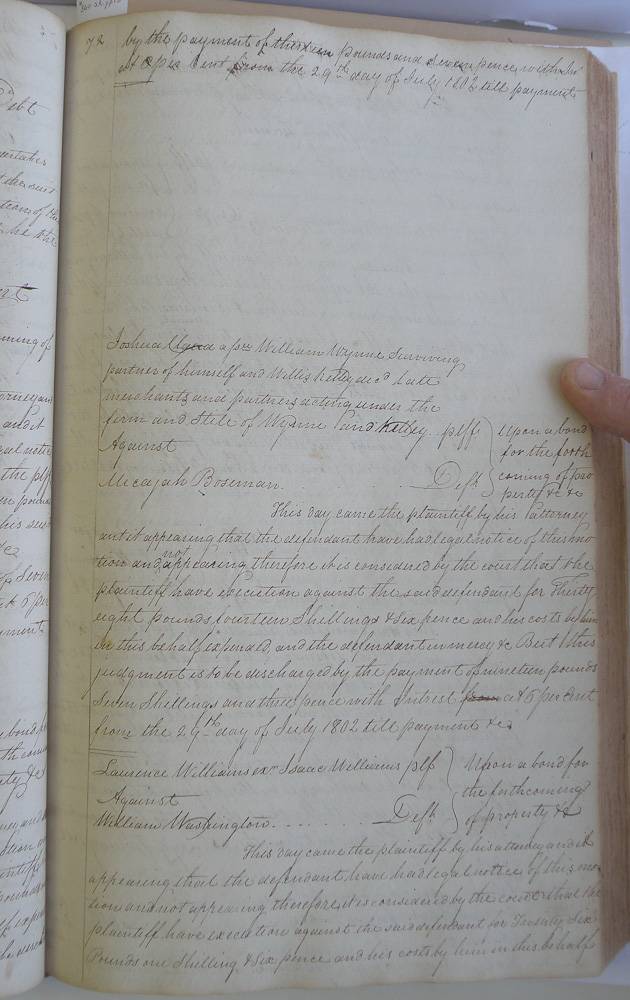 72
by the payment of thirteen pounds and seven pence with Int
at 5 per Cent from the 29th day of July 1802 till payment
Joshua a fsr William Wynne Surviving
partner of himself and Willis Kelley decd late
merchants and partners acting under the
firm and Stile of Wynne and Kelley plff
Against
Micajah Boseman Deft
Upon a bond
for the forth
coming of pro
perty &c &c
This day came the plaintiff by his attorney
and it appearing that the defendant have had legal notice of this mo
tion and not appearing therefore it is considered by the court that the
plaintiff have execution against the said defendant for Thirty
eight pounds fourteen Shillings & Six pence and his costs by him
in this behalf expended and the defendant in mercy &c But this
judgment is to be discharged by the payment of nineteen pounds
Seven Shillings and three pence with Intrest from at 5 per Cent
from the 29th day of July 1802 till payment &c
Laurence Williams exr Isaac Williams plff
Against
William Washington Deft
Upon a bond for
the forthcoming
of property &c
This day came the plaintiff by his attorney and it
appearing that the defendant have had legal notice of this mo
tion and not appearing therefore it is considered by the court that the
plaintiff have execution against the said defendant for Twenty Six
Pounds one Shilling & Six pence and his costs by him in this behalf